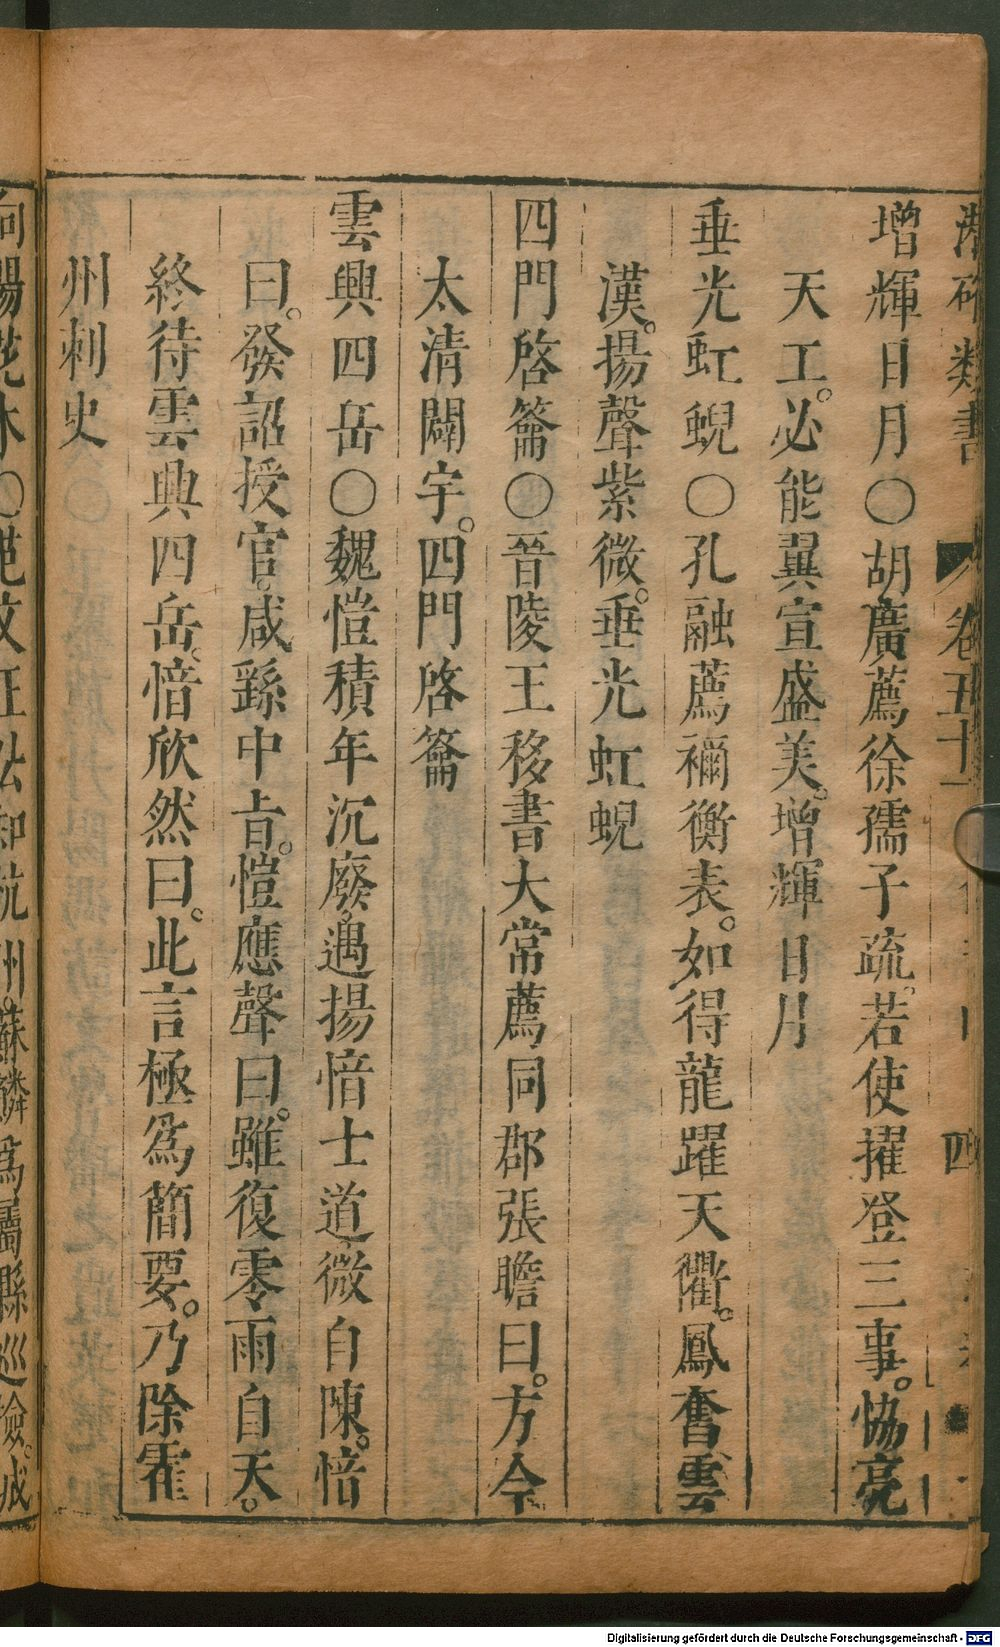 潛確類書
卷五十一
四
增輝日月○胡廣薦徐孺子疏。若使擢登三事。協亮
天工。必能翼宣盛美。增輝日月
垂光虹蜺○孔融薦禰衡表。如得龍躍天衢。鳳奮雲
漢。揚聲紫微。垂光虹蜺
四門啓籥○晉陵王移書大常薦同郡張瞻曰。方今
太清闢宇。四門啓籥
雲興四岳○魏愷積年沉廢。遇揚愔士道微自陳。愔
曰。發詔授官。咸繇中㫖。愷應聲曰。雖復零雨自天。
終待雲興四岳。愔欣然曰。此言極爲簡要。乃除霍
州刺史
向陽花木○范文正公知杭州。蘇麟爲屬縣巡檢。城
Digitalisierung gefördert durch die Deutsche Forschungsgemeinschaft - DFG